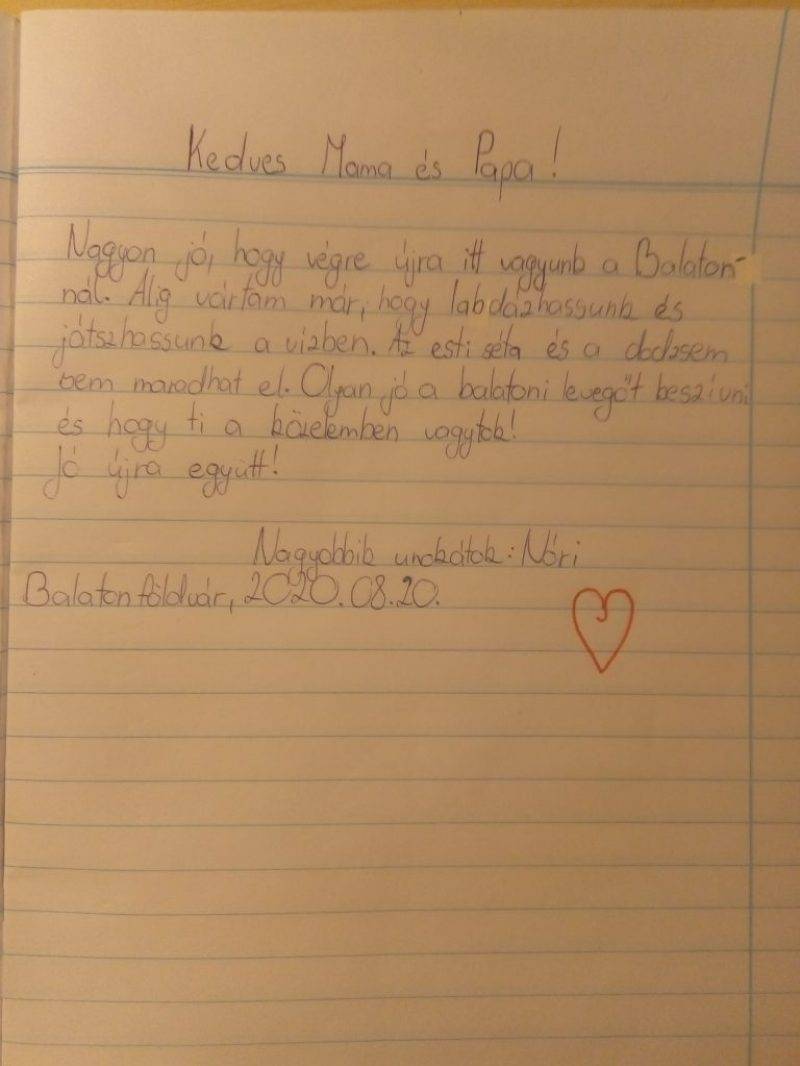 Kedves Mama és Papa!
Nagyon jó, hogy végre újra itt vagyunk a Balaton-
nál. Alig vártam már, hogy labdázhassunk és
játszhassunk a vízben. Az esti séta és a dodzsem
sem maradhat el. Olyan jó a balatoni levegőt beszívni
és hogy ti a közelemben vagytok!
Jó újra együtt!
Nagyobbik unokátok: Nóri
Balatonföldvár, 2020.08.20.